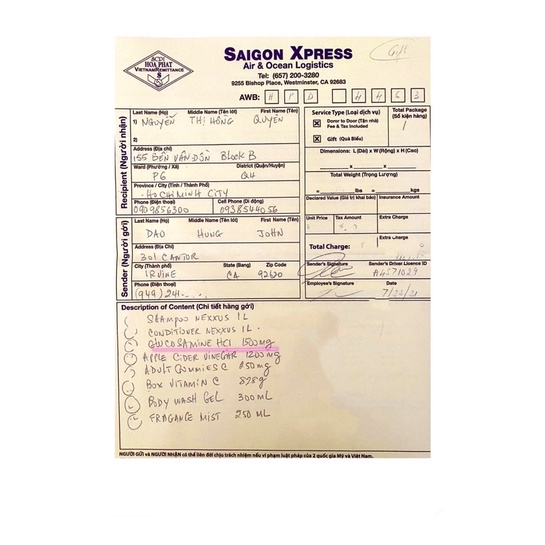 HOA PHAT
VIETNAM REMITTANCE
SAIGON XPRESS
Air & Ocean Logistics
Tel: (657) 200-3280
9255 Bishop Place, Westminster, CA 92683
Gift
AWB: H P D 4 4 5 3
Recipient (Người nhận)
Last Name (Họ) Middle Name (Tên lót) First Name (Tên)
1) NGUYỄN THỊ HỒNG QUYÊN
2)
Address (Địa Chỉ)
155 BẾN VÂN ĐỒN Block B
Ward (Phường / Xã) District (Quận/Huyện)
P6 Q4
Province / City (Tỉnh / Thành Phố)
HO CHI MINH CITY
Phone (Điện thoại) Cell Phone (Di động)
0909856300 0938544056
Service Type (Loại dịch vụ) Total Package (Số kiện hàng)
Door to Door (Tận nhà) 1
Fee & Tax Included
Gift (Quà Biếu)
Dimensions: L (Dài) x W (Rộng) x H (Cao)
Total Weight (Trọng Lượng)
lbs kg
Declared Value (Giá trị khai báo) Insurance Amount
Unit Price Tax Amount Extra Charge
Extra Charge
Total Charge:
Sender (Người gửi)
Last Name (Họ) Middle Name (Tên lót) First Name (Tên)
DAO HUNG JOHN
Address (Địa Chỉ)
301 CANTOR
City (Thành phố) State (Bang) Zip Code
IRVINE CA 92620
Phone (Điện thoại)
(949) 241-
Sender's Signature Sender's Driver Licence ID
A4571029
Employee's Signature Date
Description of Content (Chi tiết hàng gởi)
SHAMPOO NEXXUS 1L
CONDITIONER NEXXUS 1L
GLUCOSAMINE HCl 1500mg
APPLE CIDER VINEGAR 1200mg
ADULT GUMMIES C 250mg
BOX VITAMIN C 828g
BODY WASH GEL 300ML
FRAGANCE MIST 250 ML
NGƯỜI GỬI và NGƯỜI NHẬN có thể liên đới chịu trách nhiệm nếu vi phạm luật pháp của 2 quốc gia Mỹ và Việt Nam.